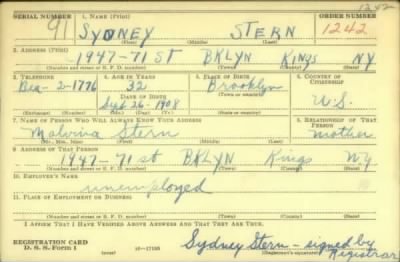 1242
SERIAL NUMBER 1. NAME (Print) ORDER NUMBER
91 SYDNEY STERN 1242
(First) (Middle) (Last)
2. ADDRESS (Print)
1947-71 ST BKLYN KINGS NY
(Number and street or R. F. D. number) (Town) (County) (State)
3. TELEPHONE 4. AGE IN YEARS 5. PLACE OF BIRTH 6. COUNTRY OF CITIZENSHIP
Bea-2-1776 32 Brooklyn
DATE OF BIRTH (Town or county)
Sept 26-1908 U.S.
(Mo.) (Day) (Yr.) (State or country)
7. NAME OF PERSON WHO WILL ALWAYS KNOW YOUR ADDRESS 8. RELATIONSHIP OF THAT PERSON
Malvina Stern mother
(Mr., Mrs., Miss) (First) (Middle) (Last)
9. ADDRESS OF THAT PERSON
1947-71 st BKLYN Kings NY
(Number and street or R. F. D. number) (Town) (County) (State)
10. EMPLOYER'S NAME
unemployed
11. PLACE OF EMPLOYMENT OR BUSINESS
(Number and street or R. F. D. number) (Town) (County) (State)
I AFFIRM THAT I HAVE VERIFIED ABOVE ANSWERS AND THAT THEY ARE TRUE.
REGISTRATION CARD
D. S. S. Form 1 16-17105 Sydney Stern - signed by Registrar
(Registrant's signature)